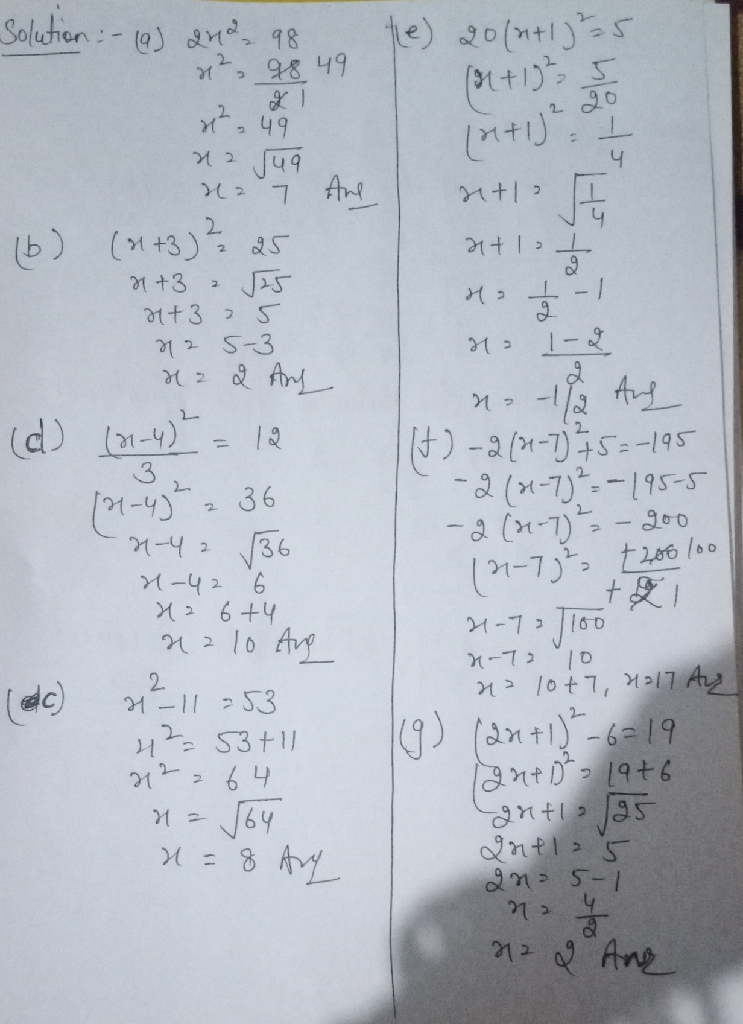 Solution :- (a) 2x² = 98
x² = 98 49 / 2 1
x² = 49
x = √49
x = 7 Ans
(b) (x+3)² = 25
x+3 = √25
x+3 = 5
x = 5-3
x = 2 Ans
(d) (x-4)² / 3 = 12
(x-4)² = 36
x-4 = √36
x-4 = 6
x = 6+4
x = 10 Ans
(c) x²-11 = 53
x² = 53+11
x² = 64
x = √64
x = 8 Ans
(e) 20(x+1)² = 5
(x+1)² = 5/20
(x+1)² = 1/4
x+1 = √1/4
x+1 = 1/2
x = 1/2 - 1
x = 1-2 / 2
x = -1/2 Ans
(f) -2(x-7)²+5 = -195
-2(x-7)² = -195-5
-2(x-7)² = -200
(x-7)² = +200 100 / +2 1
x-7 = √100
x-7 = 10
x = 10+7, x=17 Ans
(g) (2x+1)²-6 = 19
(2x+1)² = 19+6
2x+1 = √25
2x+1 = 5
2x = 5-1
x = 4/2
x = 2 Ans